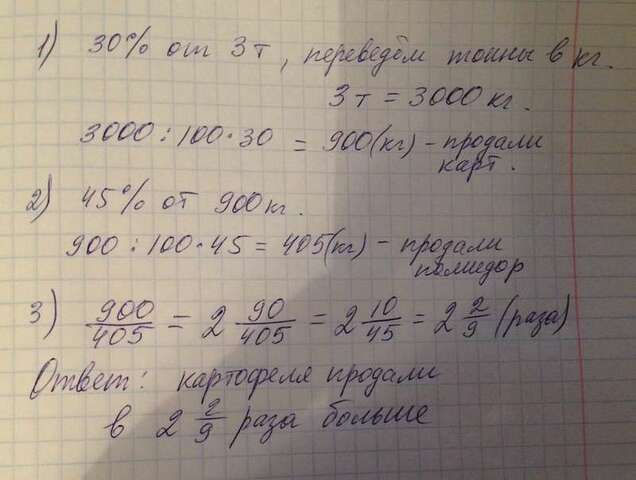 1) 30% от 3т, переведём тонны в кг.
3т = 3000 кг.
3000 : 100 · 30 = 900(кг) – продали
карт.
2) 45% от 900кг.
900 : 100 · 45 = 405(кг) – продали
помидор
3) 900/405 = 2 90/405 = 2 10/45 = 2 2/9 (раза)
Ответ: картофеля продали
в 2 2/9 раза больше